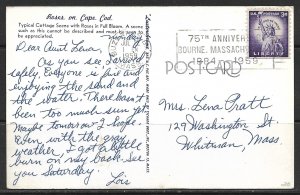 Roses on Cape Cod.
Typical Cottage Scene with Roses in Full Bloom. A scene
such as this cannot be described and must be seen to be
appreciated.
75TH ANNIVERS
BOURNE, MASSACHUS
1884 1959
3¢
LIBERTY
POSTCARD
Dear Aunt Lena,
As you see I arrived
safely. Everyone is fine and
enjoying the sand and
the water. There hasn't
been too much sun yet
Maybe tomorrow I hope.
Even with the cool
weather, I got a little
burn on my back. See
you Saturday.
Lois
Mrs. Lena Pratt
129 Washington St.
Whitman, Mass.